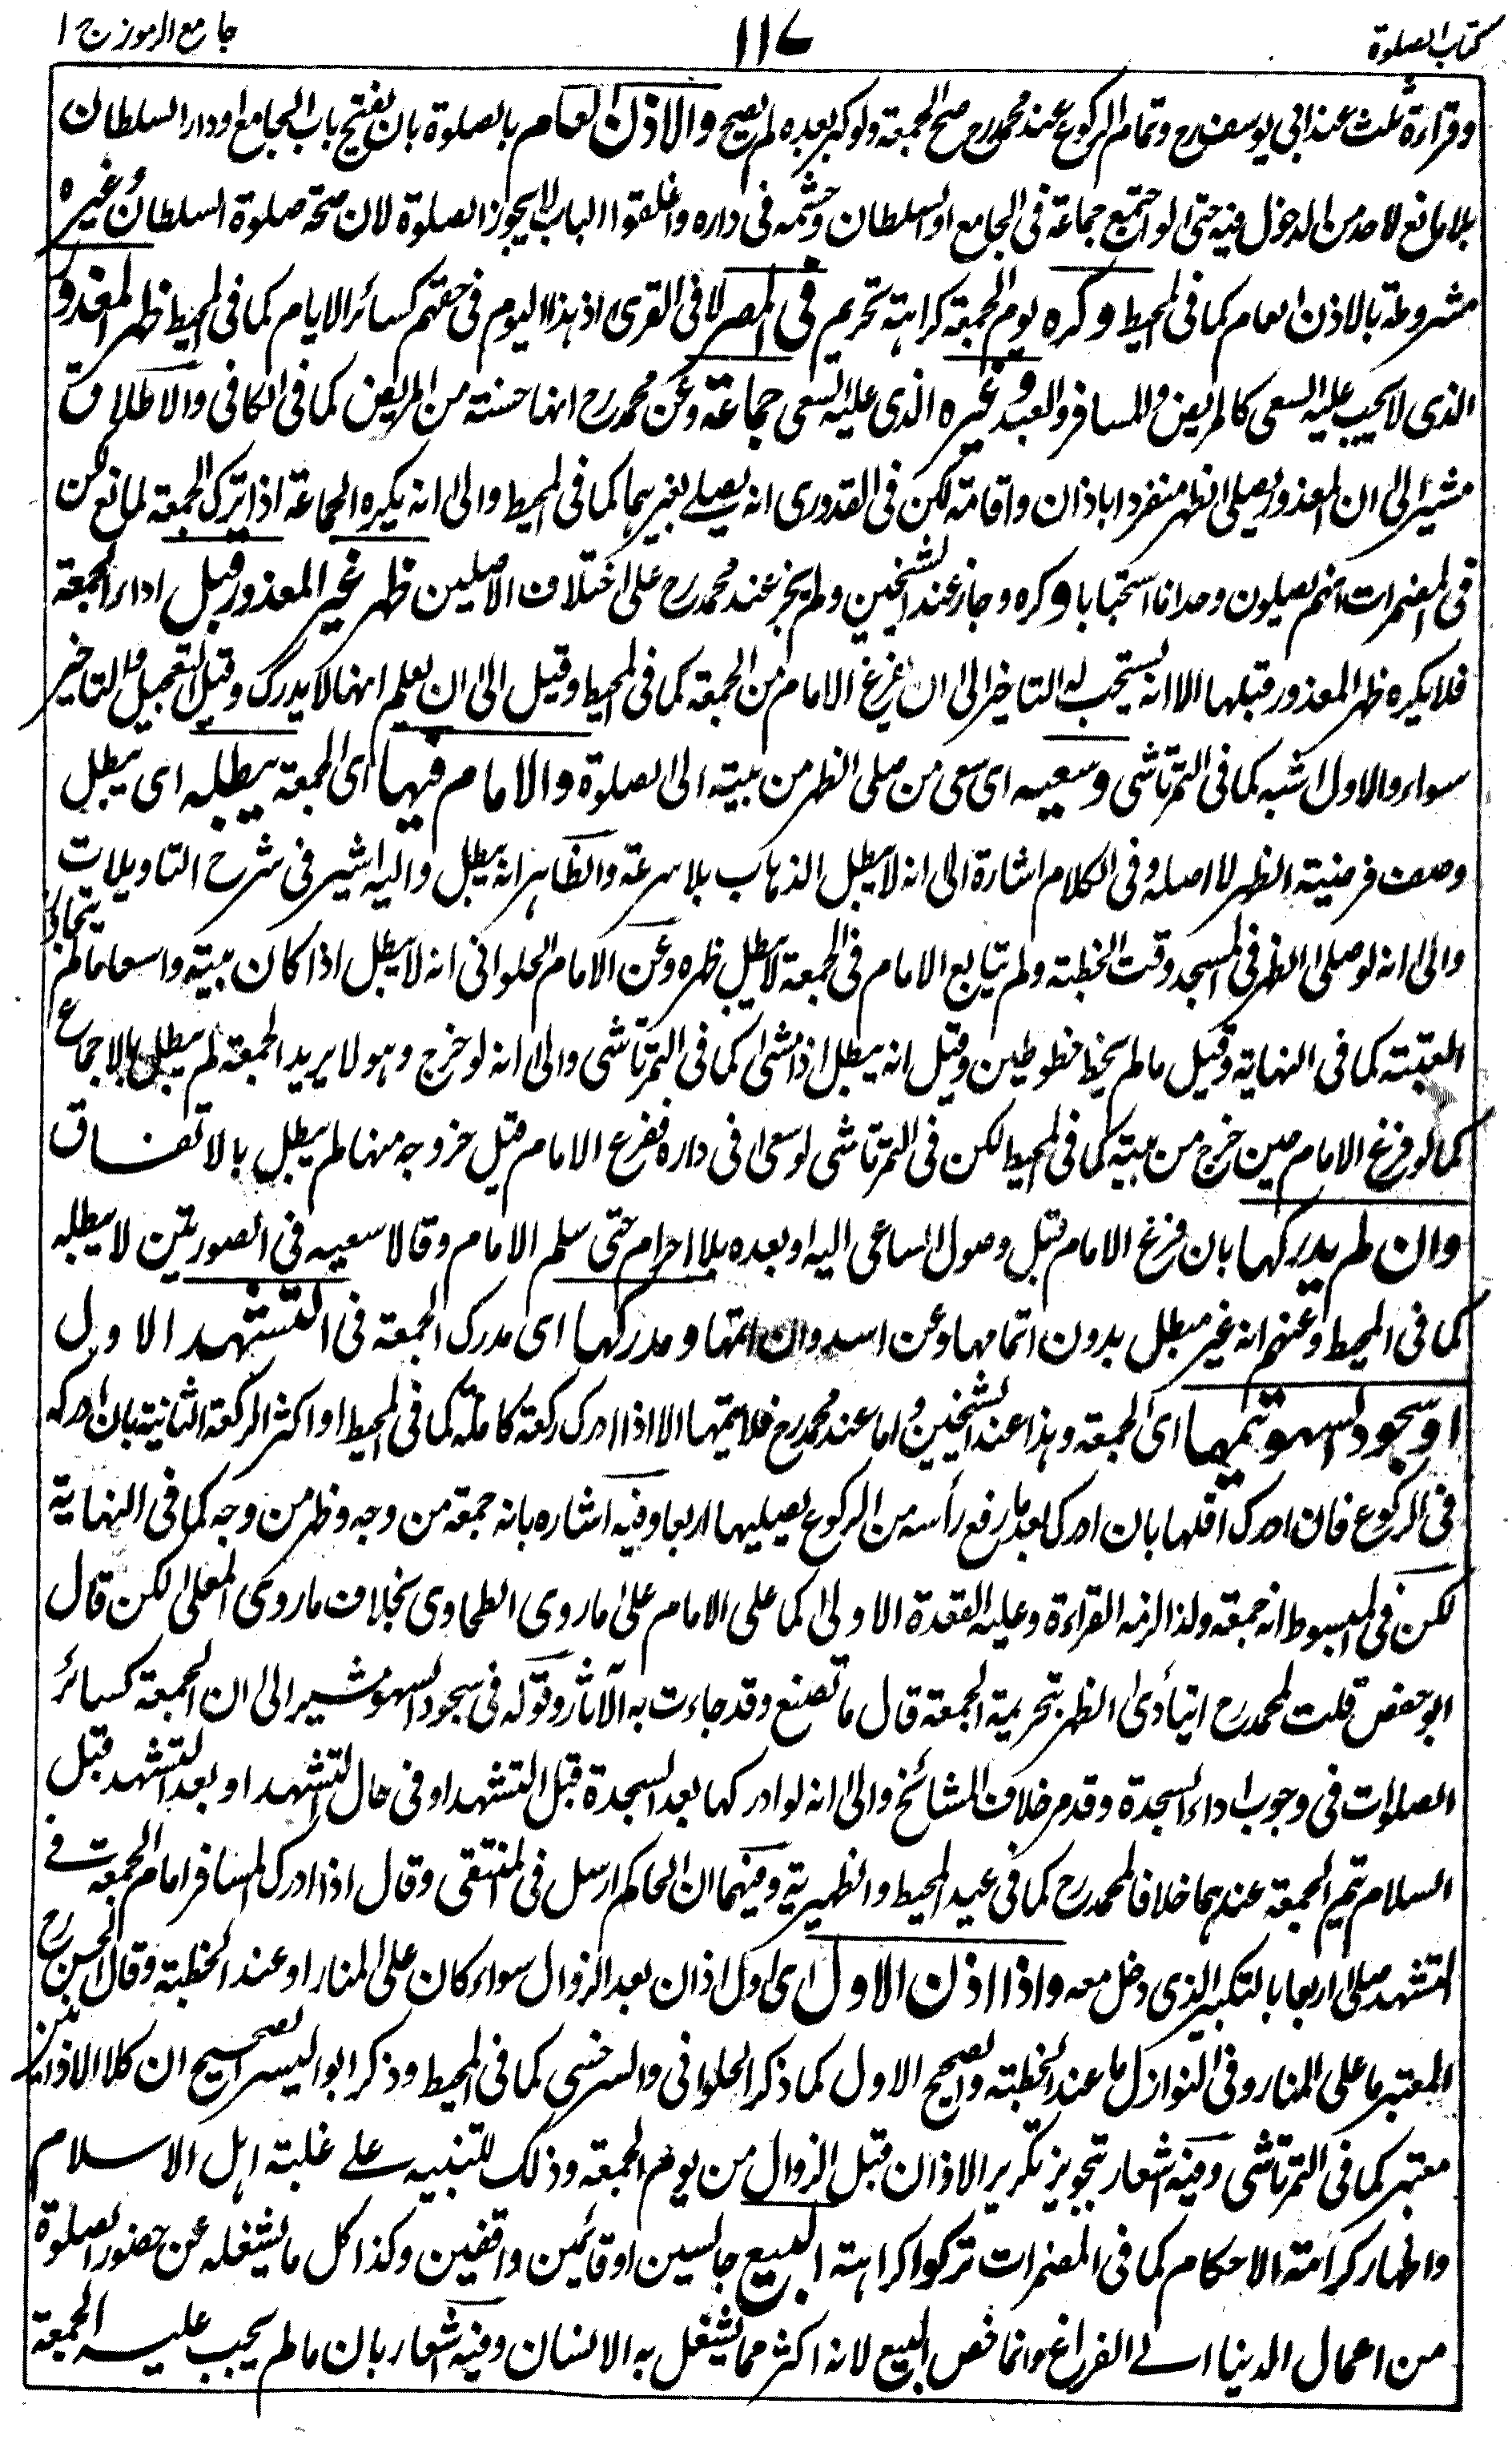 كتاب الصلوة
١١٧
جامع الرموز ج ١
وقراءة ثلث عند ابي يوسف رح وتمام الركوع عند محمد رح صح الجمعة ولو كبر بعده لم يصح والاذن العام بالصلوة بان يفتح باب الجامع او دار السلطان
بلا مانع لاحد من الدخول فيه حتى لو اجتمع جماعة في الجامع او السلطان وحشمه في داره واغلقوا الباب لايجوز الصلوة لان صحة صلوة السلطان وغيره
مشروطة بالاذن العام كما في المحيط وكره يوم الجمعة كراهة تحريم في المصر لا في القرى اذ هذا اليوم في حقهم كسائر الايام كما في المحيط ظهر المعذور
الذي لا يجب عليه السعي كالمريض والمسافر والعبد وغيره الذي عليه السعي جماعة وعن محمد رح انها حسنة من المريض كما في الكافي والاطلاق
مشير الى ان المعذور يصلي الظهر منفردا باذان واقامة لكن في القدوري انه يصلي بغيرهما كما في المحيط والى انه يكره الجماعة اذا ترك الجمعة لمانع لكن
في المضمرات انهم يصلون وحدانا استحبابا وكره وجاز عند الشيخين ولم يجز عند محمد رح على اختلاف الاصلين ظهر غير المعذور قبل اداء الجمعة
فلا يكره ظهر المعذور قبلها الا انه يستحب له التاخير الى ان يفرغ الامام من الجمعة كما في المحيط وقيل الى ان يعلم انها لا يدرك وقيل التعجيل والتاخير
سواء والاول اشبه كما في التمرتاشي وسعيه اى سعى من صلى الظهر من بيته الى الصلوة والامام فيها اى الجمعة يبطله اى يبطل
وصف فرضية الظهر لا اصله وفي الكلام اشارة الى انه لا يبطل الذهاب بلا سرعة والظاهر انه يبطل واليه اشير في شرح التاويلات
والى انه لو صلى الظهر في المسجد وقت الخطبة ولم يتابع الامام في الجمعة لا يبطل ظهره وعن الامام الحلواني انه لا يبطل اذا كان بيته واسعا ما لم يتجاوز
العتبة كما في النهاية وقيل ما لم يخط خطوطين وقيل انه يبطل اذا مشى كما في التمرتاشي والى انه لو خرج وهو لا يريد الجمعة لم يبطل بالاجماع
كما لو فرغ الامام حين خرج من بيته كما في المحيط لكن في التمرتاشي لو سعى في داره ففرغ الامام قبل خروجه منها لم يبطل بالاتفاق
وان لم يدركها بان فرغ الامام قبل وصول الساعي اليه او بعده بلا احرام حتى سلم الامام وقالا سعيه في الصورتين لا يبطله
كما في المحيط وعنهم انه غير مبطل بدون اتمامها وعن اسد وان اتمها ومدركها اى مدرك الجمعة في التشهد الاول
او سجود السهو يتمها اى الجمعة وهذا عند الشيخين واما عند محمد رح فلا يتمها الا اذا ادرك ركعة كاملة كما في المحيط او اكثر الركعة الثانية بان ادركه
في الركوع فان ادرك اقلها بان ادرك بعد ما رفع رأسه من الركوع يصليها اربعا وفيه اشاره بانه جمعة من وجه وظهر من وجه كما في النهاية
لكن في المبسوط انه جمعة ولذا الزمه القراءة وعليه القعدة الاولى كما على الامام على ما روى الطحاوى بخلاف ما روى المعلى لكن قال
ابو حفص قلت لمحمد رح ايتأدى الظهر بتحريمة الجمعة قال ما تصنع وقد جاءت به الآثار وقوله في سجود السهو مشير الى ان الجمعة كسائر
الصلوات في وجوب اداء السجدة وقد مر خلاف المشائخ والى انه لو ادركها بعد السجدة قبل التشهد او في حال التشهد او بعد التشهد قبل
السلام يتم الجمعة عندهما خلافا لمحمد رح كما في عيد المحيط والظهيرية وفيهما ان الحاكم ارسل في المنتقى وقال اذا ادرك المسافر امام الجمعة في
التشهد صلى اربعا بالتكبير الذي دخل معه واذا اذن الاول اى اول اذان بعد الزوال سواء كان على المنار او عند الخطبة وقال الحسن رح
المعتبر ما على المنار وفي النوازل ما عند الخطبة والصحيح الاول كما ذكر الحلواني والسرخسي كما في المحيط وذكر ابو اليسر الصحيح ان كلا الاذانين
معتبر كما في التمرتاشي وفيه اشعار بتجويز تكرير الاذان قبل الزوال من يوم الجمعة وذلك للتنبيه على غلبة اهل الاسلام
واظهار كرامة الاحكام كما في المضمرات تركوا كراهته البيع جالسين او قائمين واقفين وكذا كل ما يشغله عن حضور الصلوة
من اعمال الدنيا الى الفراغ وانما خص البيع لانه اكثر مما يشغل به الانسان وفيه اشعار بان ما لم يجب عليه الجمعة